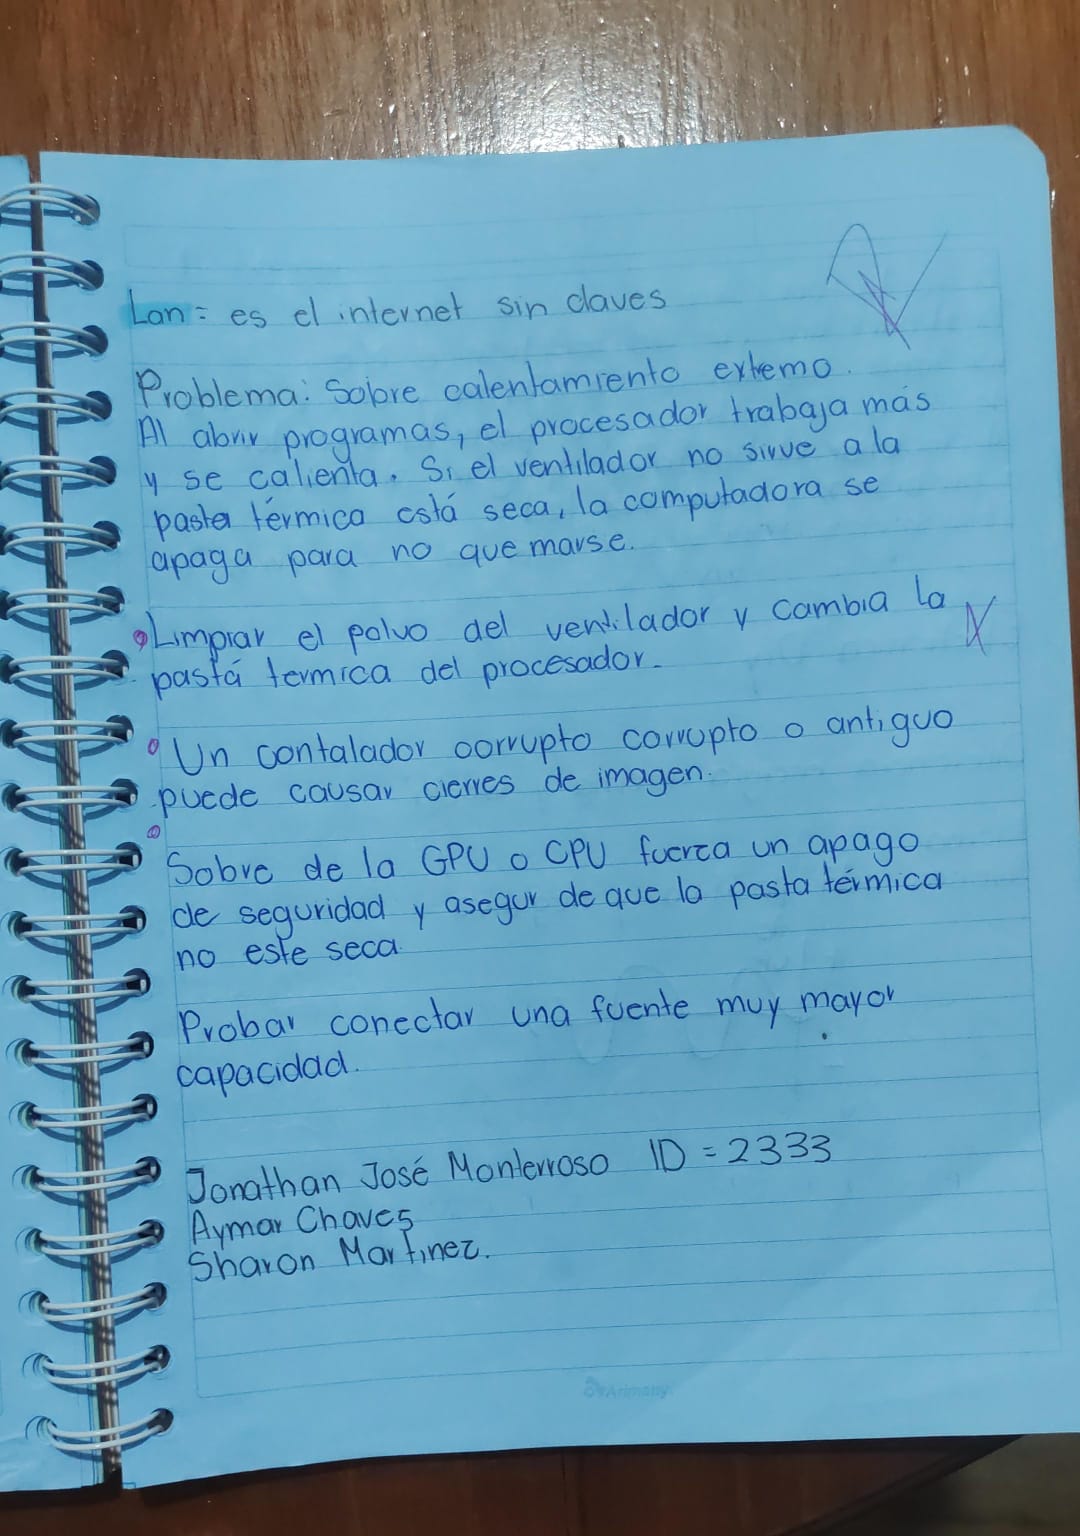 Lan = es el internet sin claves
Problema: Sobre calentamiento extemo.
Al abrir programas, el procesador trabaja más
y se calienta. Si el ventilador no sirve a la
pasta térmica está seca, la computadora se
apaga para no quemarse.
Limpiar el polvo del ventilador y cambia la
pastá termica del procesador.
Un contalador corrupto corrupto o antiguo
puede causar cierres de imagen.
Sobre de la GPU o CPU fuerza un apago
de seguridad y asegur de que la pasta térmica
no este seca
Probar conectar una fuente muy mayor
capacidad.
Jonathan José Monterroso ID = 2333
Aymar Chaves
Sharon Martinez.
Arimany